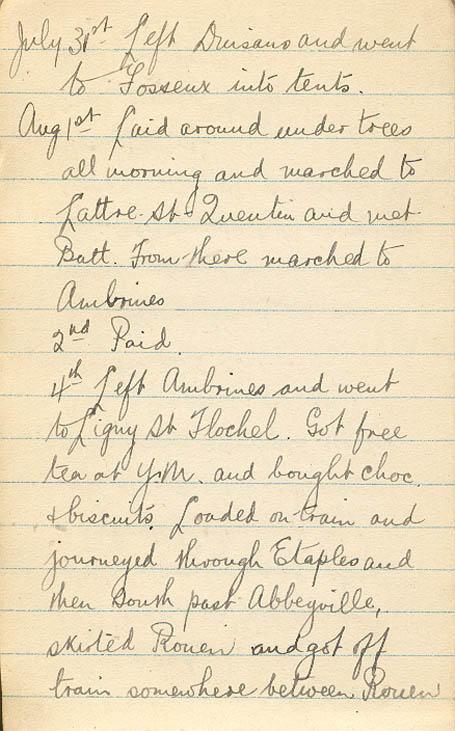 July 31st Left Duisans and went
to Fosseux into tents.
Aug 1st Laid around under trees
all morning and marched to
Lattre-St-Quentin and met
Batt. From there marched to
Ambrines
2nd Paid.
4th Left Ambrines and went
to Ligny St Flochel. Got free
tea at Y.M. and bought choc.
& biscuits. Loaded on train and
journeyed through Etaples and
then South past Abbeyville,
skirted Rouen and got off
train somewhere between Rouen